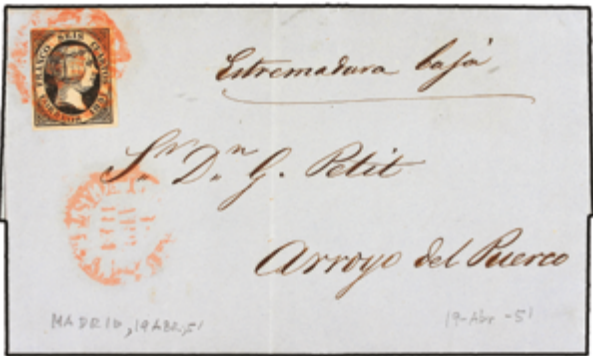 FRANCO SEIS CUARTOS
CORREOS 1851
Estremadura bajà
Sr. Dn. G. Petit
Arroyo del Puerco
MADRID, 19 ABR. 51
19-Abr-51